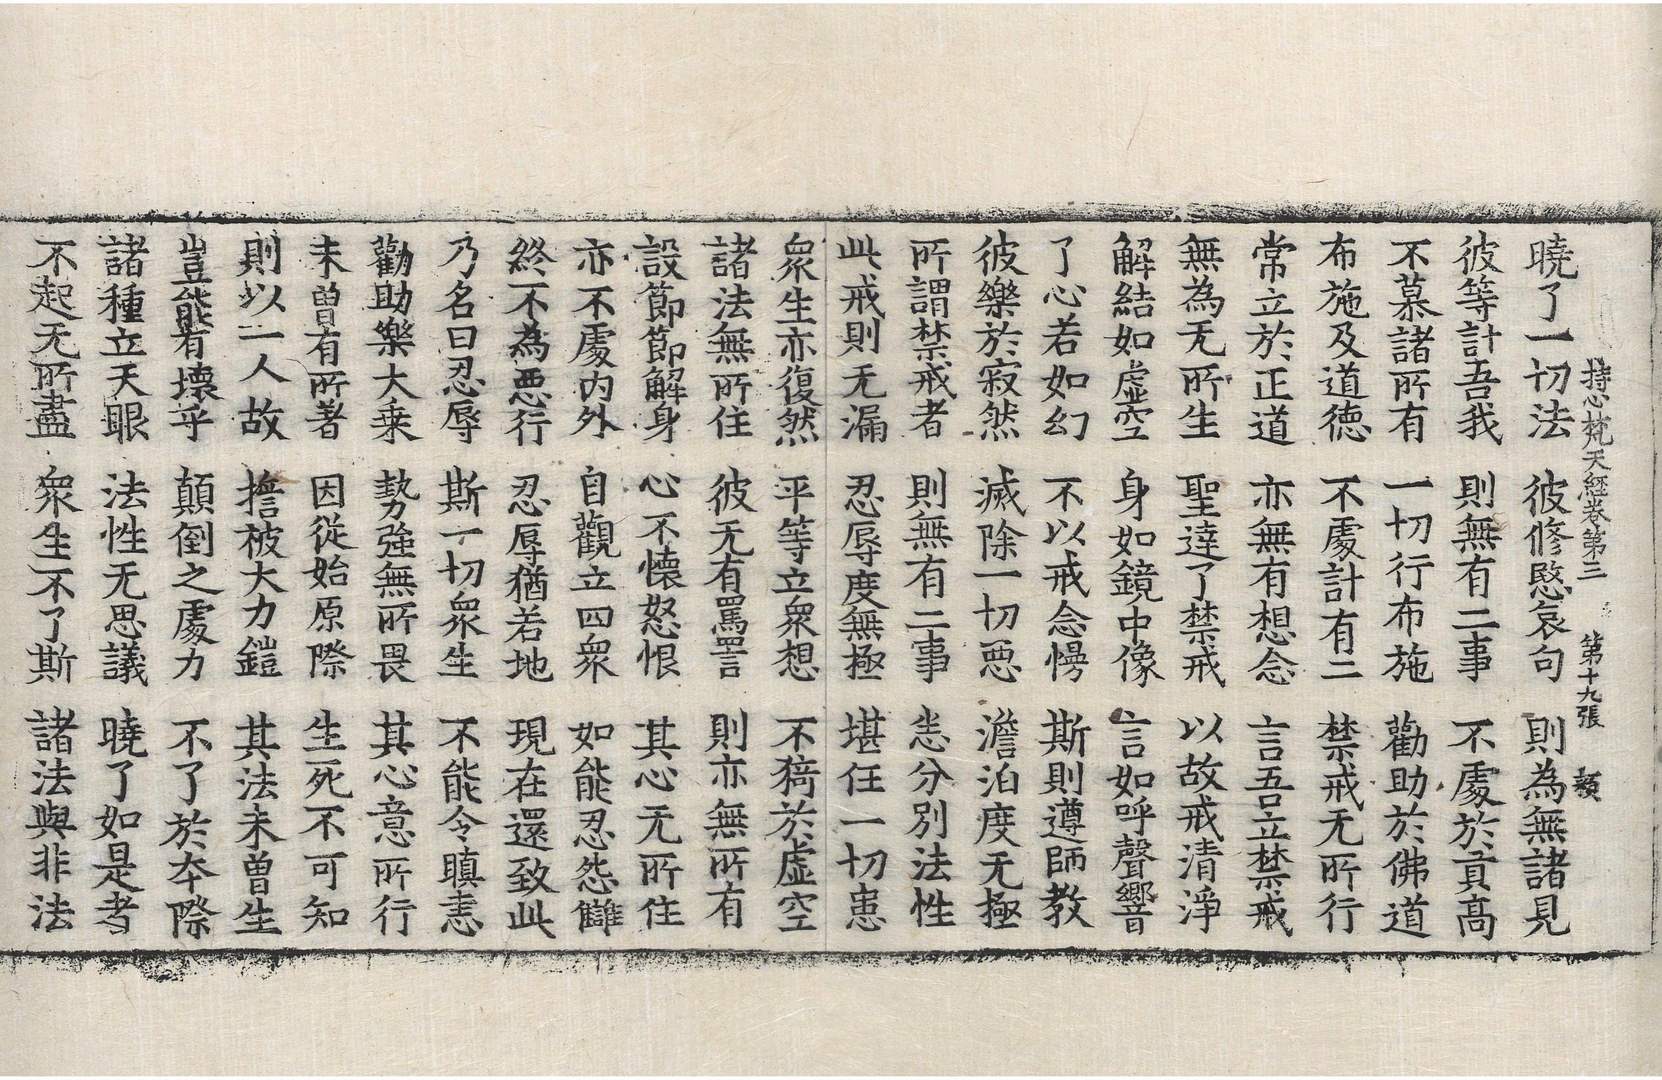 持心梵天經卷第三 第十九張 顡
曉了一切法 彼修愍哀句 則為無諸見
彼等計吾我 則無有二事 不處於貢高
不慕諸所有 一切行布施 勸助於佛道
布施及道德 不處計有二 禁戒无所行
常立於正道 亦無有想念 言吾立禁戒
無為无所生 聖達了禁戒 以故戒清淨
解結如虛空 身如鏡中像 言如呼聲響
了心若如幻 不以戒念慢 斯則遵師教
彼樂於寂然 滅除一切惡 澹泊度无極
所謂禁戒者 則無有二事 恙分別法性
此戒則无漏 忍辱度無極 堪任一切患
眾生亦復然 平等立眾想 不猗於虛空
諸法無所住 彼无有罵詈 則亦無所有
設節節解身 心不懷怒恨 其心无所住
亦不處內外 自觀立四眾 如能忍怨讎
終不為惡行 忍辱猶若地 現在還致此
乃名曰忍辱 斯一切眾生 不能令瞋恚
勸助樂大乘 勢強無所畏 其心意所行
未曾有所著 因從始原際 生死不可知
則以一人故 擔被大力鎧 其法未曾生
豈能有壞乎 顛倒之處力 不了於本際
諸種立天眼 法性无思議 曉了如是者
不起无所盡 眾生不了斯 諸法與非法